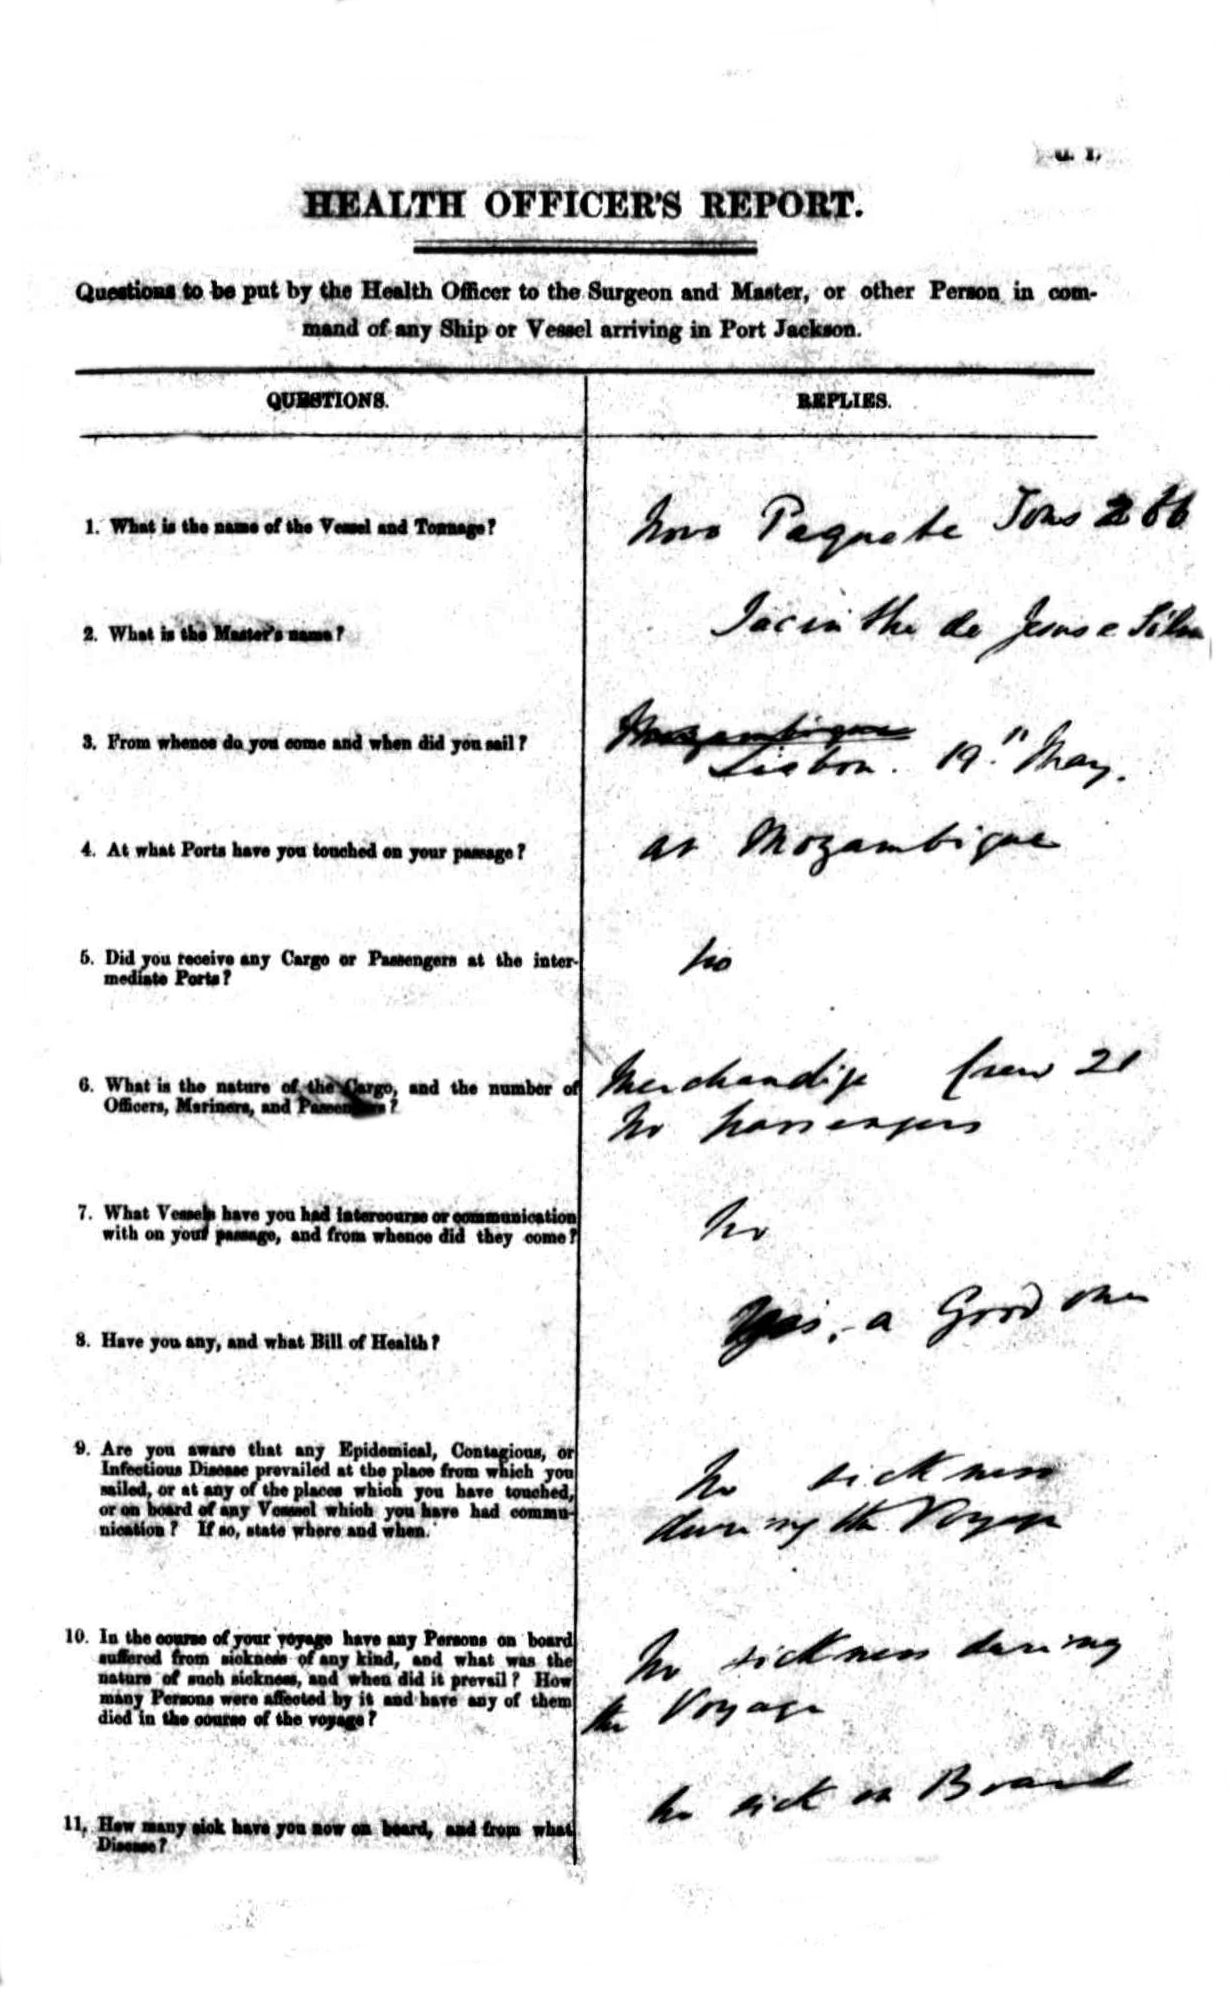 HEALTH OFFICER'S REPORT.
Questions to be put by the Health Officer to the Surgeon and Master, or other Person in com-
mand of any Ship or Vessel arriving in Port Jackson.
QUESTIONS.
REPLIES.
1. What is the name of the Vessel and Tonnage?
Novo Paquete Tons 266
2. What is the Master's name?
Jacintho de Jesus e Silva
3. From whence do you come and when did you sail?
Mozambique
Lisbon. 19" May.
4. At what Ports have you touched on your passage?
at Mozambique
5. Did you receive any Cargo or Passengers at the inter-
mediate Ports?
No
6. What is the nature of the Cargo, and the number of
Officers, Mariners, and Passengers?
Merchandise Crew 21
No passengers
7. What Vessels have you had intercourse or communication
with on your passage, and from whence did they come?
No
8. Have you any, and what Bill of Health?
Yes, - a Good one
9. Are you aware that any Epidemical, Contagious, or
Infectious Disease prevailed at the place from which you
sailed, or at any of the places which you have touched,
or on board of any Vessel which you have had commu-
nication? If so, state where and when.
No sickness
during the Voyage
10. In the course of your voyage have any Persons on board
suffered from sickness of any kind, and what was the
nature of such sickness, and when did it prevail? How
many Persons were affected by it and have any of them
died in the course of the voyage?
No sickness during
the Voyage
11. How many sick have you now on board, and from what
Disease?
No sick on Board